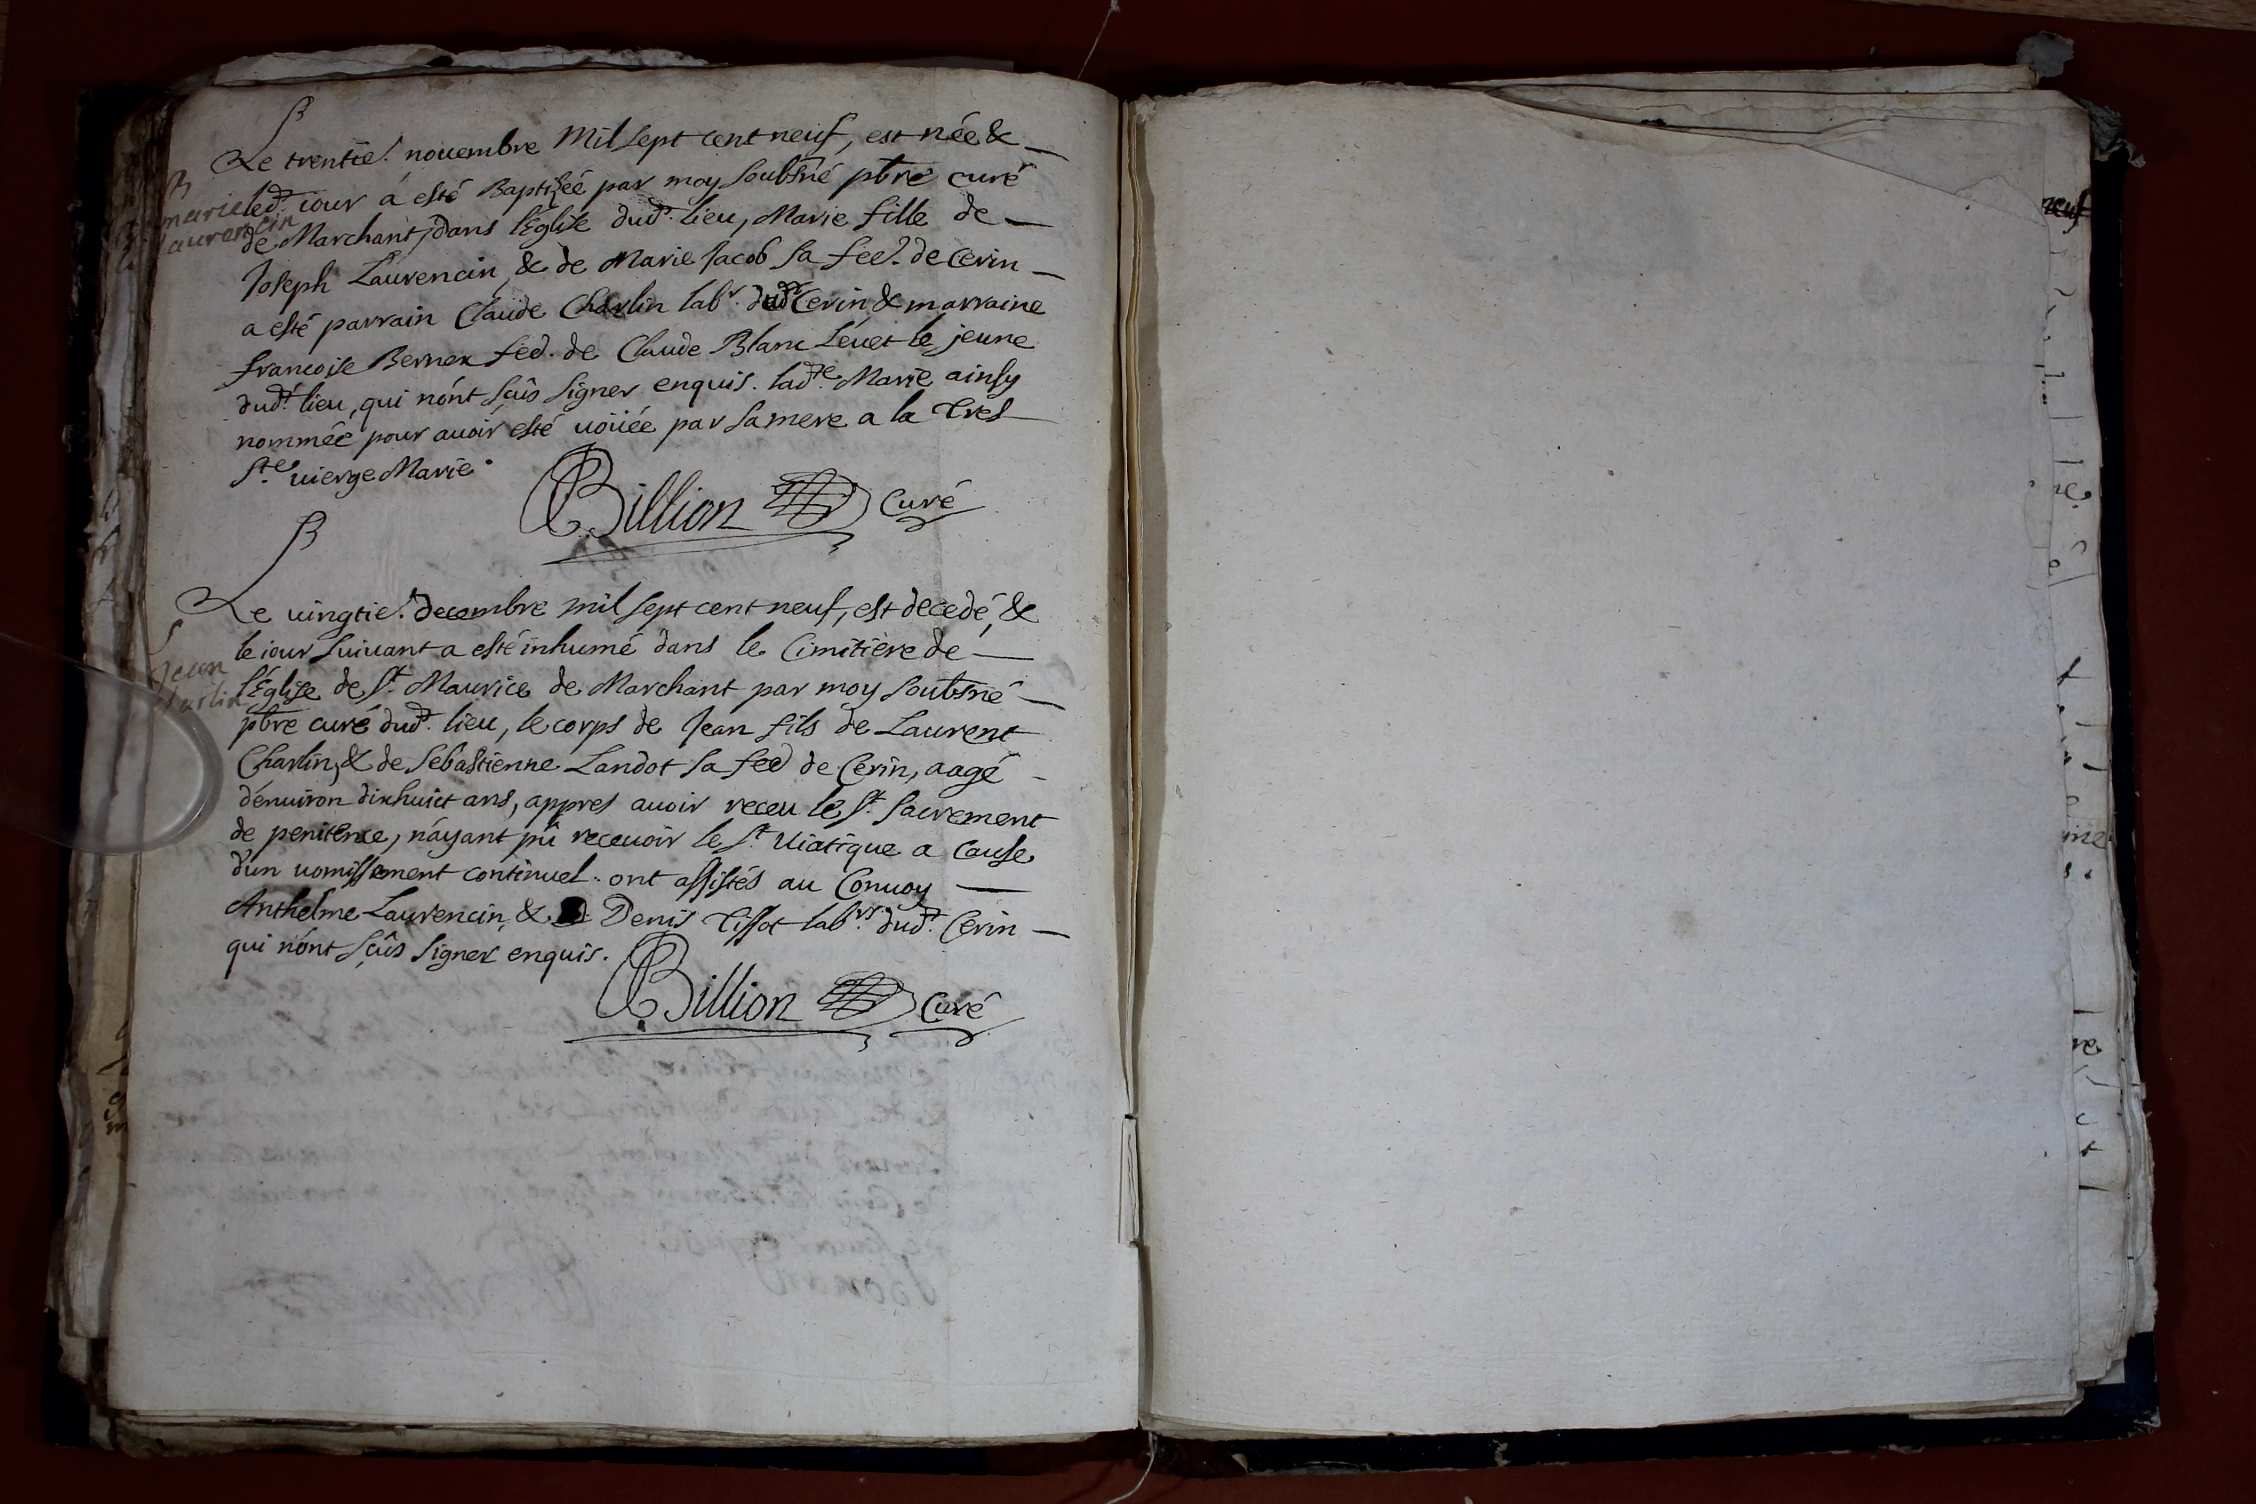 Le trentie. nouembre Mil sept cent neuf, est née &
B
marie
laurencin
led.t iour á esté Baptizéé par moy soubsné ptre curé
de Marchant, dans l'Eglise dud.t lieu, Marie fille de
Joseph Laurencin, & de Marie Jacob sa fee. de Cerin
a esté parrain Claude Charlin lab.r dud.t Cerin & marraine
francoise Bernex feē. de Claude Blanc Léuet le jeune
dud.t lieu, qui nónt sçûs signer enquis. lad.te Marie ainsy
nomméé pour auoir esté uoüée par sa mere a la tres
S.te uierge Marie.
Billion Curé
Le uingtie. decembre mil sept cent neuf, est decedé, &
Jean
le iour suiuant a esté inhumé dans le Cimitière de
l'Eglise de S.t Maurice de Marchant par moy soubsné
ptre curé dud.t lieu, le corps de Jean fils de Laurent
Charlin, & de Sebastienne Landot sa feē de Cerin, aagé
d'enuiron dixhuict ans, appres auoir receu le S.t Sacrement
de penitence, n'ayant pû receuoir le S.t Uiatique a cause
d'un uomissement continuel. ont assistés au Conuoy
Anthelme Laurencin, & Denis Tissot lab.rs dud.t Cerin
qui nónt sçûs signer enquis.
Billion Curé
neuf